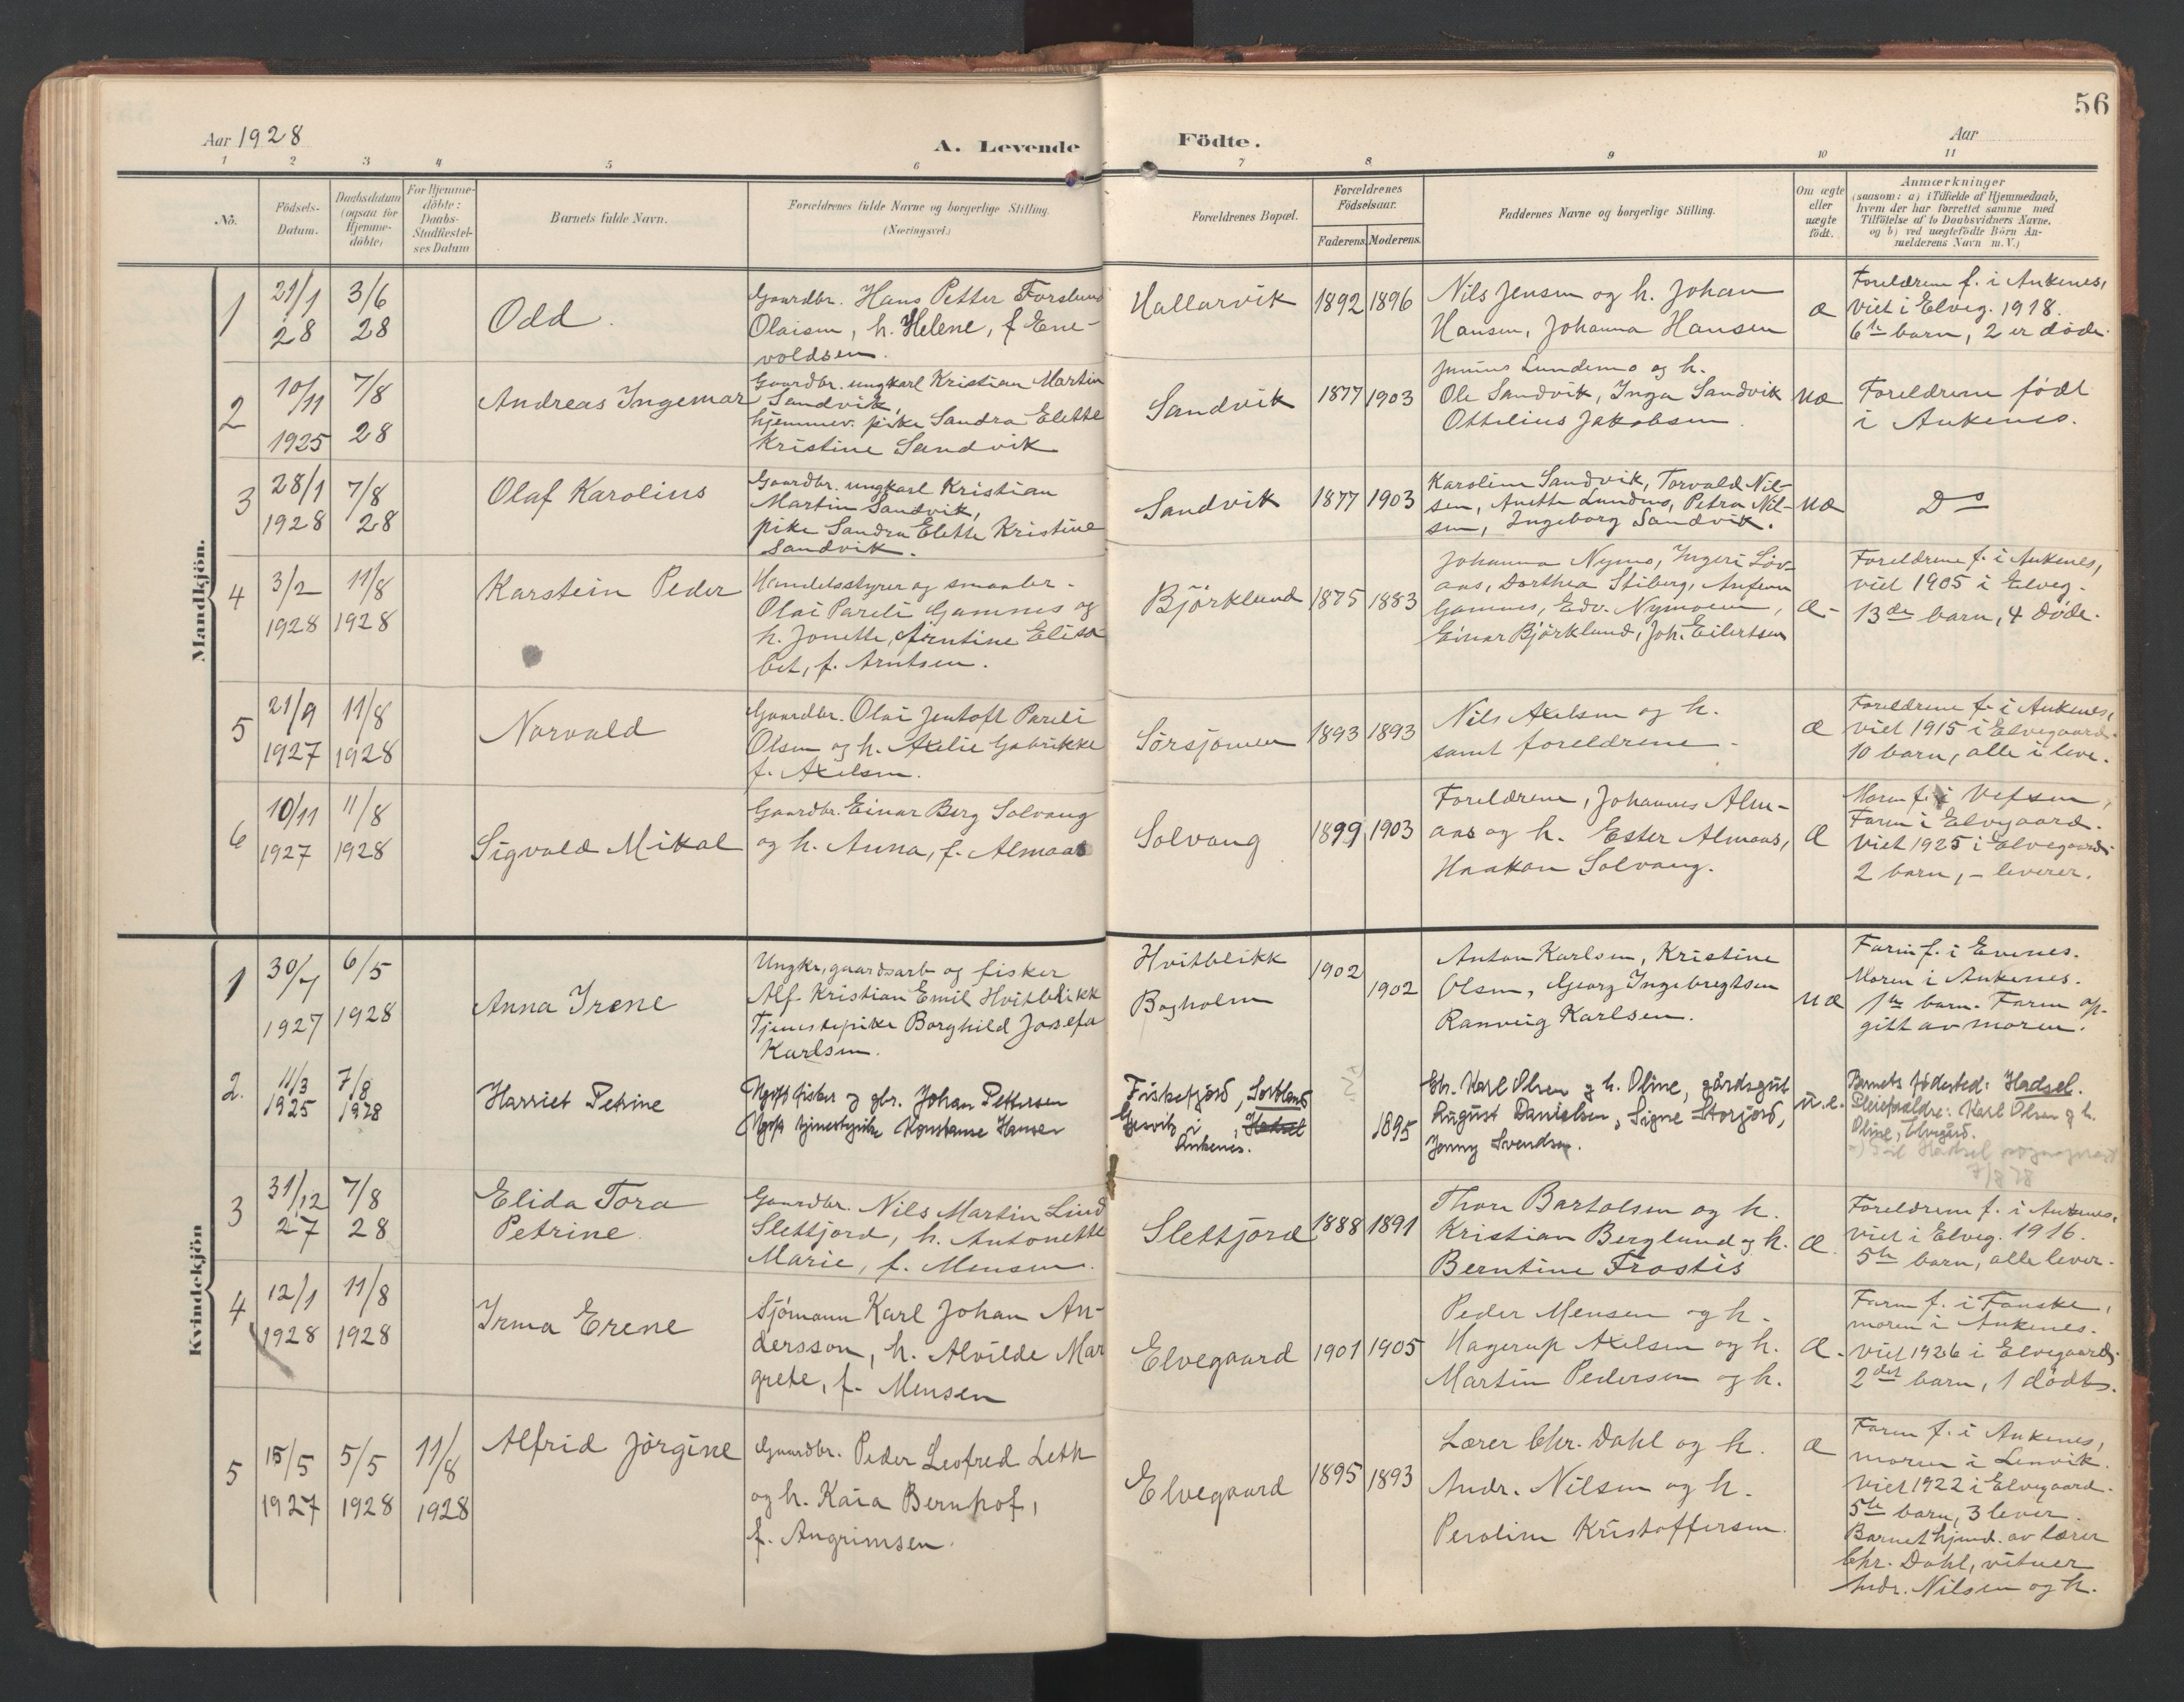 56
Aar 1928
A. Levende Födte.
Aar
1 2 3 4 5 6 7 8 9 10 11
Nö.
Födsels-
Datum.
Daabsdatum
(ogsaa for
Hjemme-
döbte)
For Hjemme-
döbte:
Daabs-
Stadfæstel-
ses Datum
Barnets fulde Navn.
Forældrenes fulde Navne og borgerlige Stilling.
(Næringsvei.)
Forældrenes Bopæl.
Forældrenes
Födselsaar.
Faderens. Moderens.
Faddernes Navne og borgerlige Stilling.
Om ægte
eller
uægte
födt.
Anmærkninger
(saasom: a) i Tilfælde af Hjemmedaab,
hvem der har forrettet samme med
Tilföielse af to Daabsvidners Navne.
og b) ved uægtefödte Börn An-
melderens Navn m.V.)
Mandkjön.
1
21/1
28
3/6
28
Odd
Gaardbr. Hans Petter Forslund
Olaisen, h. Helene, f. Ene-
voldsen.
Hallarvik
1892 1896
Nils Jensen og h. Johan
Hansen, Johanna Hansen
æ
Foreldrene f. i Ankenes,
viet i Elveg. 1918.
6te barn, 2 er døde.
2
10/11
1925
7/8
28
Andreas Ingemar
Gaardbr. ungkarl Kristian Martin
Sandvik,
hjemmev. pike Sandra Elette
Kristine Sandvik
Sandvik
1877 1903
Junius Lundemo og h.
Ole Sandvik, Inga Sandvik
Ottelius Jakobsen.
uæ
Foreldrene født
i Ankenes.
3
28/1
1928
7/8
28
Olaf Karolius
Gaardbr. ungkarl Kristian
Martin Sandvik,
pike Sandra Elette Kristine
Sandvik.
Sandvik
1877 1903
Karoline Sandvik, Torvald Nil-
sen, Anette Lundmo, Petra Nil-
sen, Ingeborg Sandvik.
uæ
Do
4
3/2
1928
11/8
1928
Karstein Peder
Handelsstyrer og smaabr.
Olai Pareli Gamnes og
h. Jonette, Arntine Elisa
bet, f. Arntsen.
Björklund
1875 1883
Johanna Nymo, Ingeri Löv-
aas, Dorthea Stiberg, Anfinn
Gamnes, Edv. Nymoen,
Einar Björklund, Joh. Eilertsen
æ-
Foreldrene f. i Ankenes,
viet 1905 i Elveg.
13de barn, 4 døde.
5
21/9
1927
11/8
1928
Norvald
Gaardbr. Olai Jentoft Pareli
Olsen og h. Axelie Gabrikke
f. Axelsen.
Sörsjonen
1893 1893
Nils Axelsen og h.
samt foreldrene.
æ
Foreldrene f. i Ankenes,
viet 1915 i Elvegaard.
10 barn, alle i leve.
6
10/11
1927
11/8
1928
Sigvald Mikal
Gaardbr. Einar Berg Solvang
og h. Anna, f. Almaas
Solvang
1899 1903
Foreldrene, Johannes Alm-
aas og h. Ester Almaas,
Haakon Solvang.
æ
Moren f. i Vefsen,
Faren i Elvegaard.
viet 1925 i Elvegaard.
2 barn, - leverer.
Kvindekjön
1
30/7
1927
6/5
1928
Anna Irene
Ungkr., gaardsarb og fisker
Alf Kristian Emil Hvitblikk
Tjenestepike Borghild Josefa
Karlsen.
Hvitblikk
Bogholm
1902
1902
Anton Karlsen, Kristine
Olsen, Georg Ingebregtsen
Ranveig Karlsen.
uæ
Faren f. i Evenes.
Moren i Ankenes.
1te barn. Faren op-
gitt av moren.
2.
11/3
1925
7/8
1928
Harriet Petrine
Ugift fisker og gbr. Johan Pettersen
Ugift tjenestepike Konstanse Hansen
Fiskefjord, Sortland
Gjesvik i, Hadsel
Ankenes.
1895
Gbr. Karl Olsen og h. Oline, gårdsgut
August Danielsen, Signe Storjord,
Jenny Svendsen.
u.e.
Barnets fødested: Hadsel.
Pleieforeldre: Karl Olsen og h.
Oline, Elvegård.
Hadsel sogneprest
7/8 28
3
31/12
27
7/8
28
Elida Tora
Petrine
Gaardbr. Nils Martin Lind
Slettjord, h. Antonette
Marie, f. Mensen.
Slettjord
1888 1891
Thor Bartolsen og h.
Kristian Berglund og h.
Berntine Frostis
æ.
Foreldrene f. i Ankenes,
viet i Elveg. 1916.
5te barn, alle lever.
4
12/1
1928
11/8
1928
Irma Erene
Sjömann Karl Johan An-
dersson, h. Alvilde Mar
grete, f. Mensen
Elvegaard
1901 1905
Peder Mensen og h.
Hagerup Axelsen og h.
Martin Pedersen og h.
æ.
Faren f. i Fauske,
moren i Ankenes.
viet 1926 i Elvegaard.
2det barn, 1 dødt.
5
15/5
1927
5/5
1928
11/8
1928
Alfrid Jörgine
Gaardbr. Peder Leofred Leth
og h. Kaia Bernhof,
f. Angrimsen.
Elvegaard
1895 1893
Lærer Chr. Dahl og h.
Andr. Nilsen og h.
Peroline Kristoffersen.
æ
Faren f. i Ankenes,
moren i Lenvik.
viet 1922 i Elvegaard.
5te barn, 3 lever.
Barnet hjmd. av lærer
Chr. Dahl, vitner
Andr. Nilsen og h.